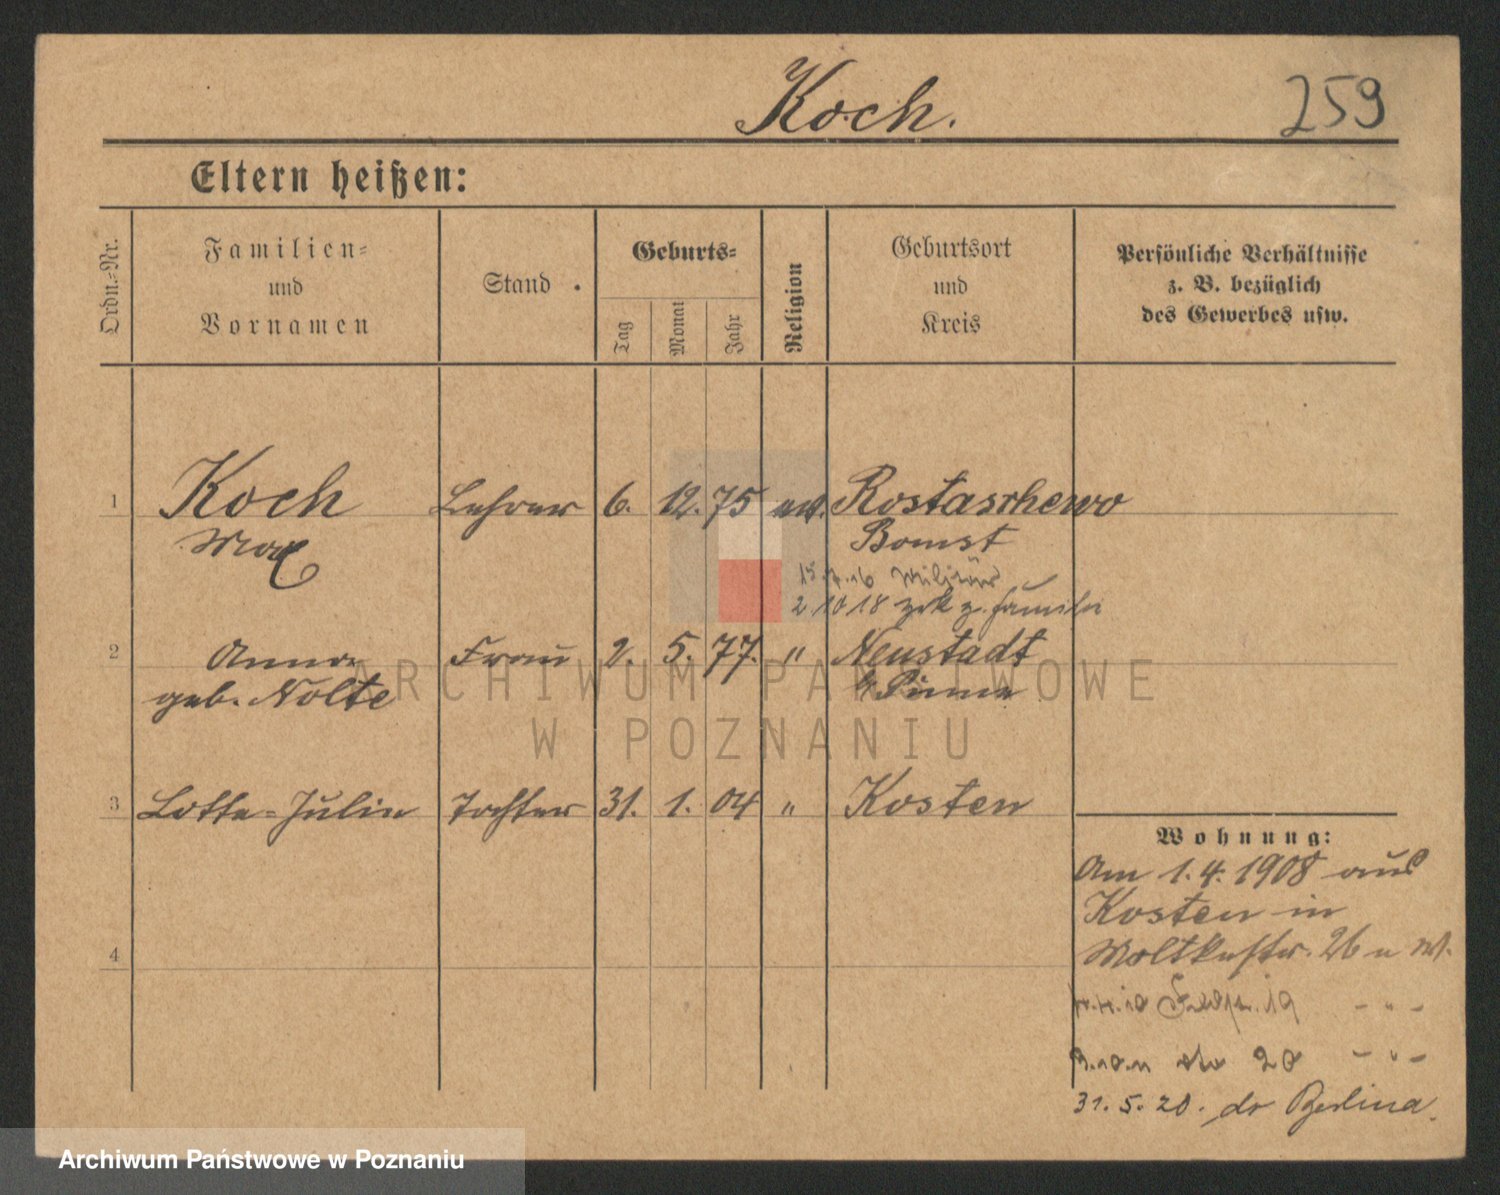 Koch.
259
Eltern heißen:
Ordn.=Nr.
Familien=
und
Vornamen
Stand
Geburts=
Tag
Monat
Jahr
Religion
Geburtsort
und
Kreis
Persönliche Verhältnisse
z. B. bezüglich
des Gewerbes usw.
1 Koch Lehrer 6. 12. 75 ev. Rostarschewo
Max Bomst
15.7.16 Militär
2 10 18 zrk z. Familie
2 Anna Frau 2. 5. 77. " Neustadt
geb. Nolte b/Pinne
3 Lotte=Julie Tochter 31. 1. 04 " Kosten
4
Wohnung:
Am 1.4.1908 aus
Kosten in
Moltkestr. 26 u W.
19 - " -
20 - " -
31. 5. 20. do Berlina.
ARCHIWUM PAŃSTWOWE
W POZNANIU
Archiwum Państwowe w Poznaniu